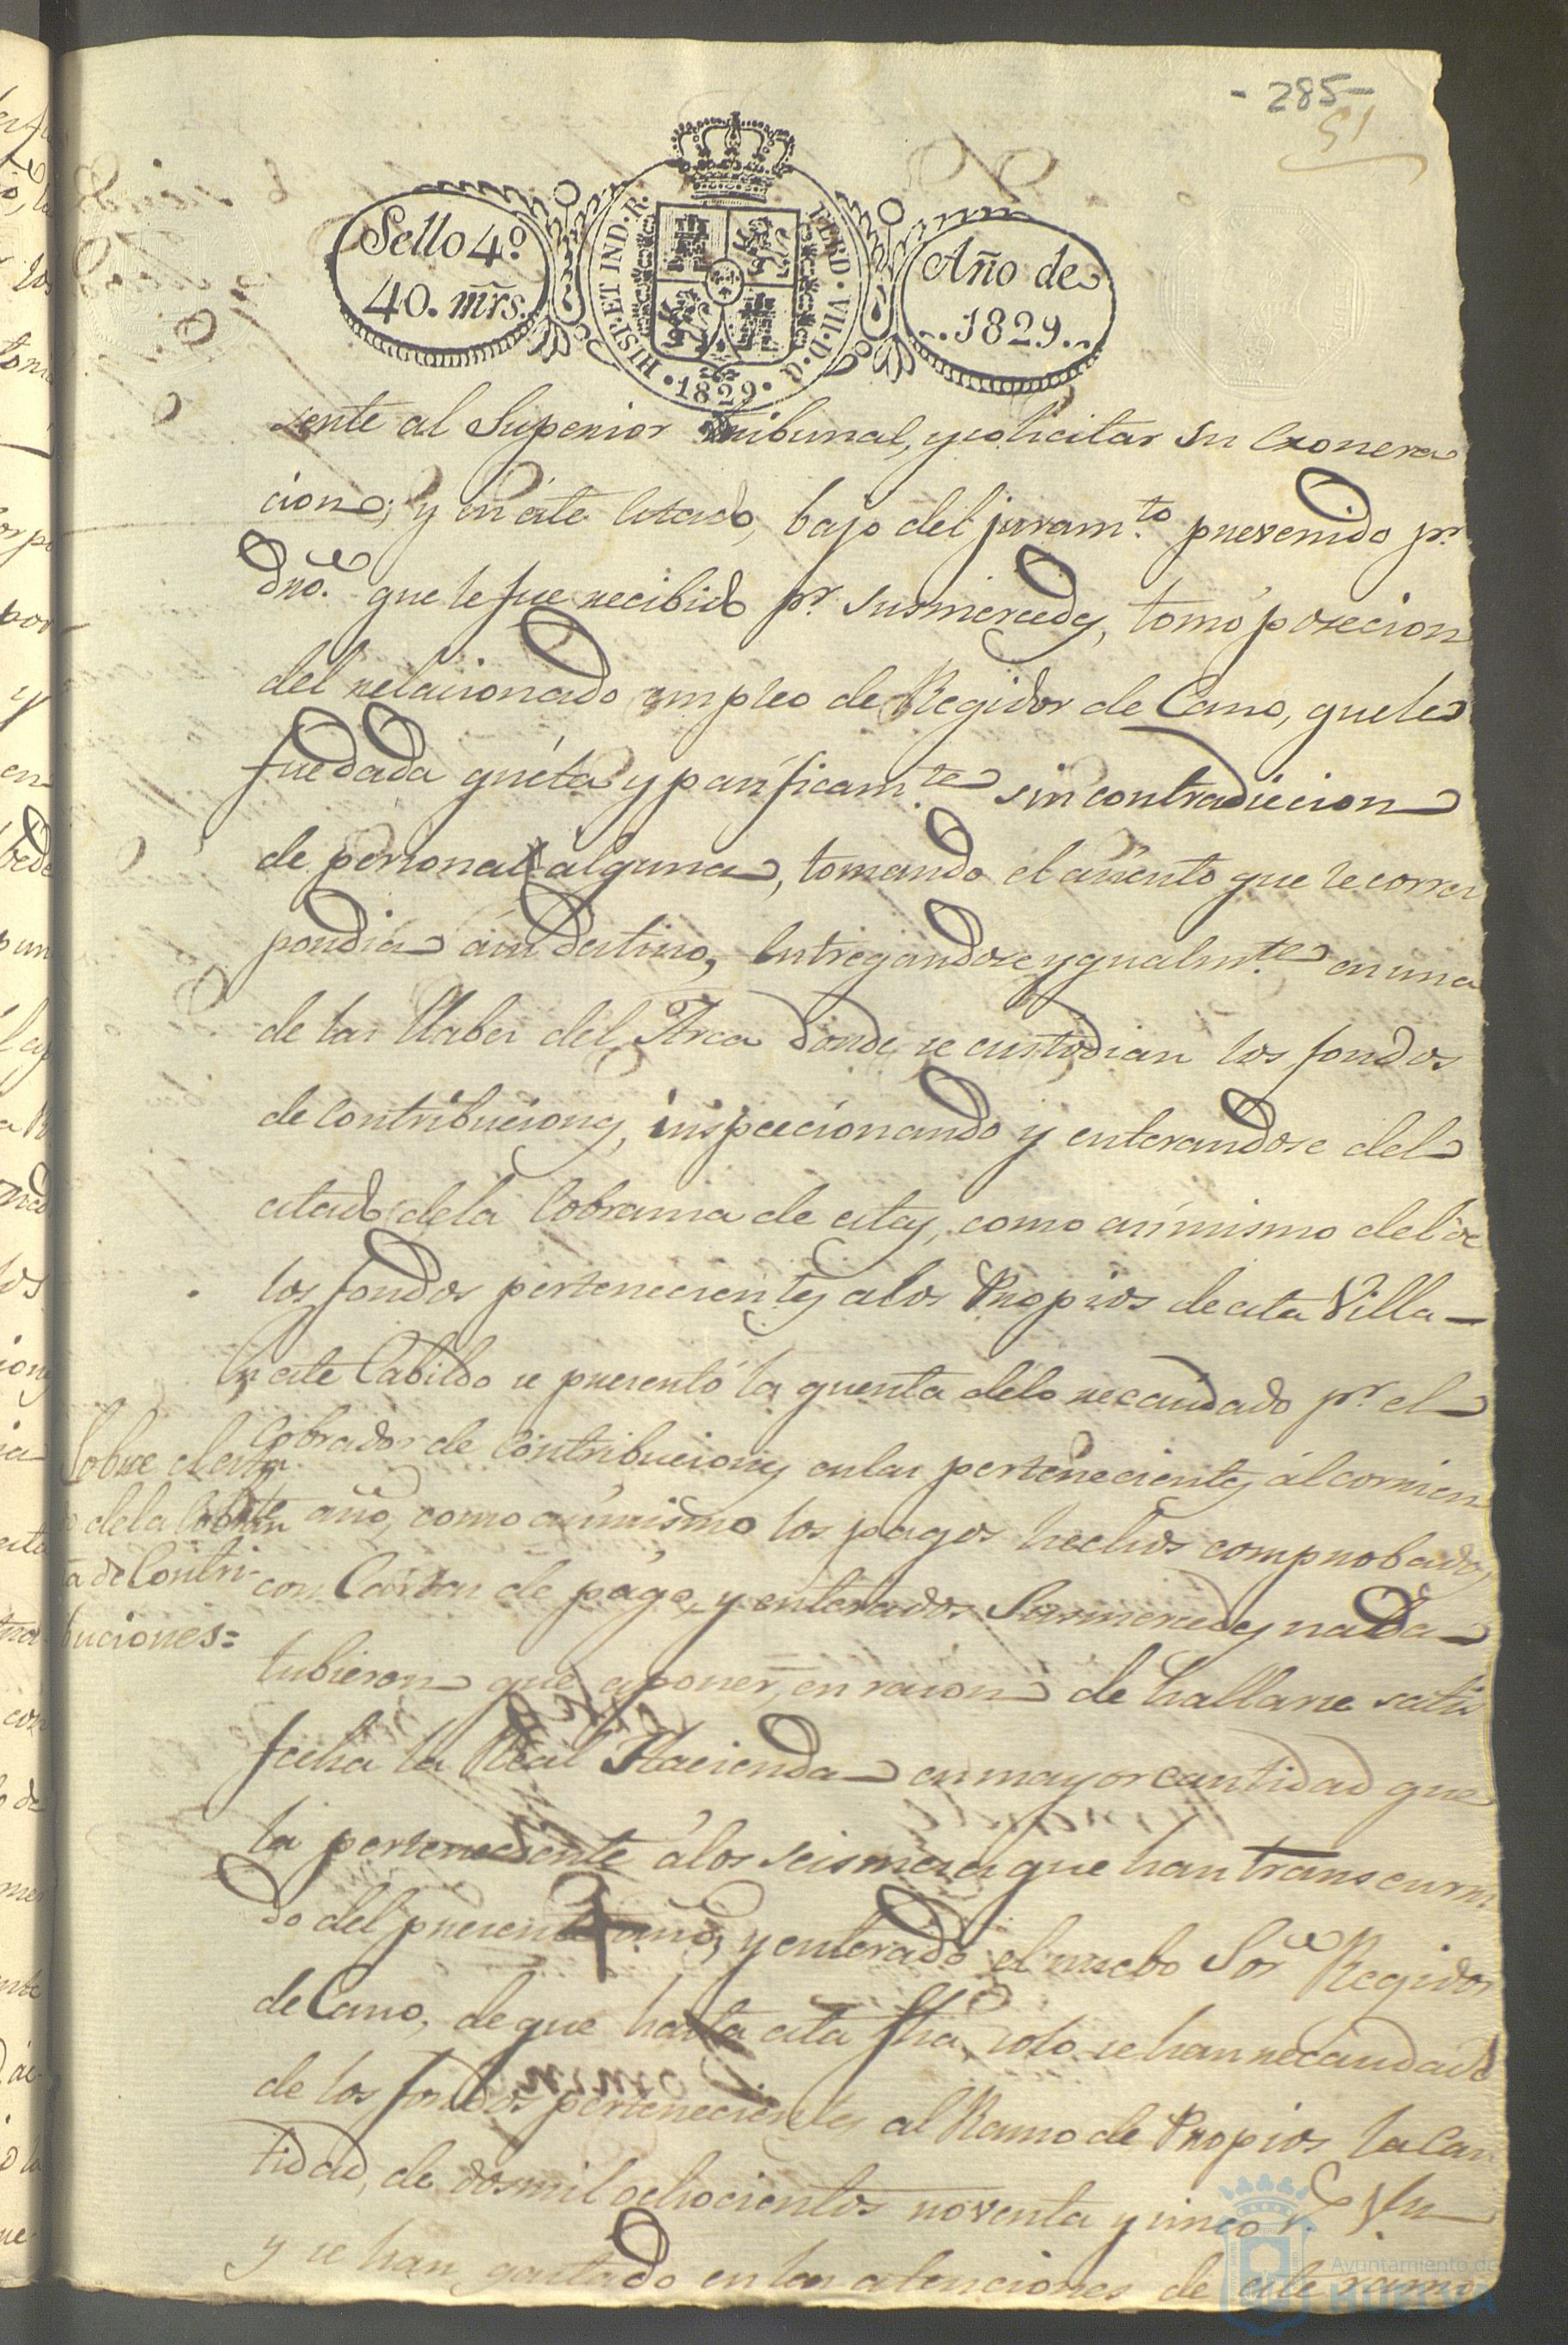 - 285 -
51
Sello 4º
40. mrs.
HISP. ET IND. R.
FERD. VII. D. G.
1829
Año de
1829
sente al Superior Tribunal, y solicitar su Exonera
cion; y en éste estado, bajo del juram.to prevenido p.r
dro. que le fue recibido p.r susmercedes, tomó posecion
del relacionado empleo de Regidor de Cano, que le
fue dada quieta y pacificam.te sin contradiccion
de persona alguna, tomando el asiento que le corres
pondia ásu destino, Entregandose ygualm.te en una
de las llabes del Arca donde se custodian los fondos
de Contribuciones, inspeccionando y enterandose del
estado dela Cobransa de estas, como asimismo del de
los fondos pertenecientes alos Propios de esta Villa
En este Cabildo se presentó la quenta délo recaudado p.r el
Cobrador de Contribuciones en las pertenecientes ál corrien
te año, como asimismo los pagos hechos comprobados
con Cartas de pago, y enterados Susmercedes nada
tubieron que oponer, en racon de hallarse satis
fecha la Real Hacienda en mayor cantidad que
la perteneciente álos seis meses que han transcurri
do del presente año, y enterado el nuebo Sor Regidor
de Cano, de que hasta esta fha solo se han recaudado
de los fondos pertenecientes al Ramo de Propios la Can
tidad, de dosmil ochocientos noventa y cinco r.s Vn
y se han gastado en las atenciones de este ramo
Sobre el esta
do dela Cobran
sa de Contri-
buciones=
Ayuntamiento de
HUELVA